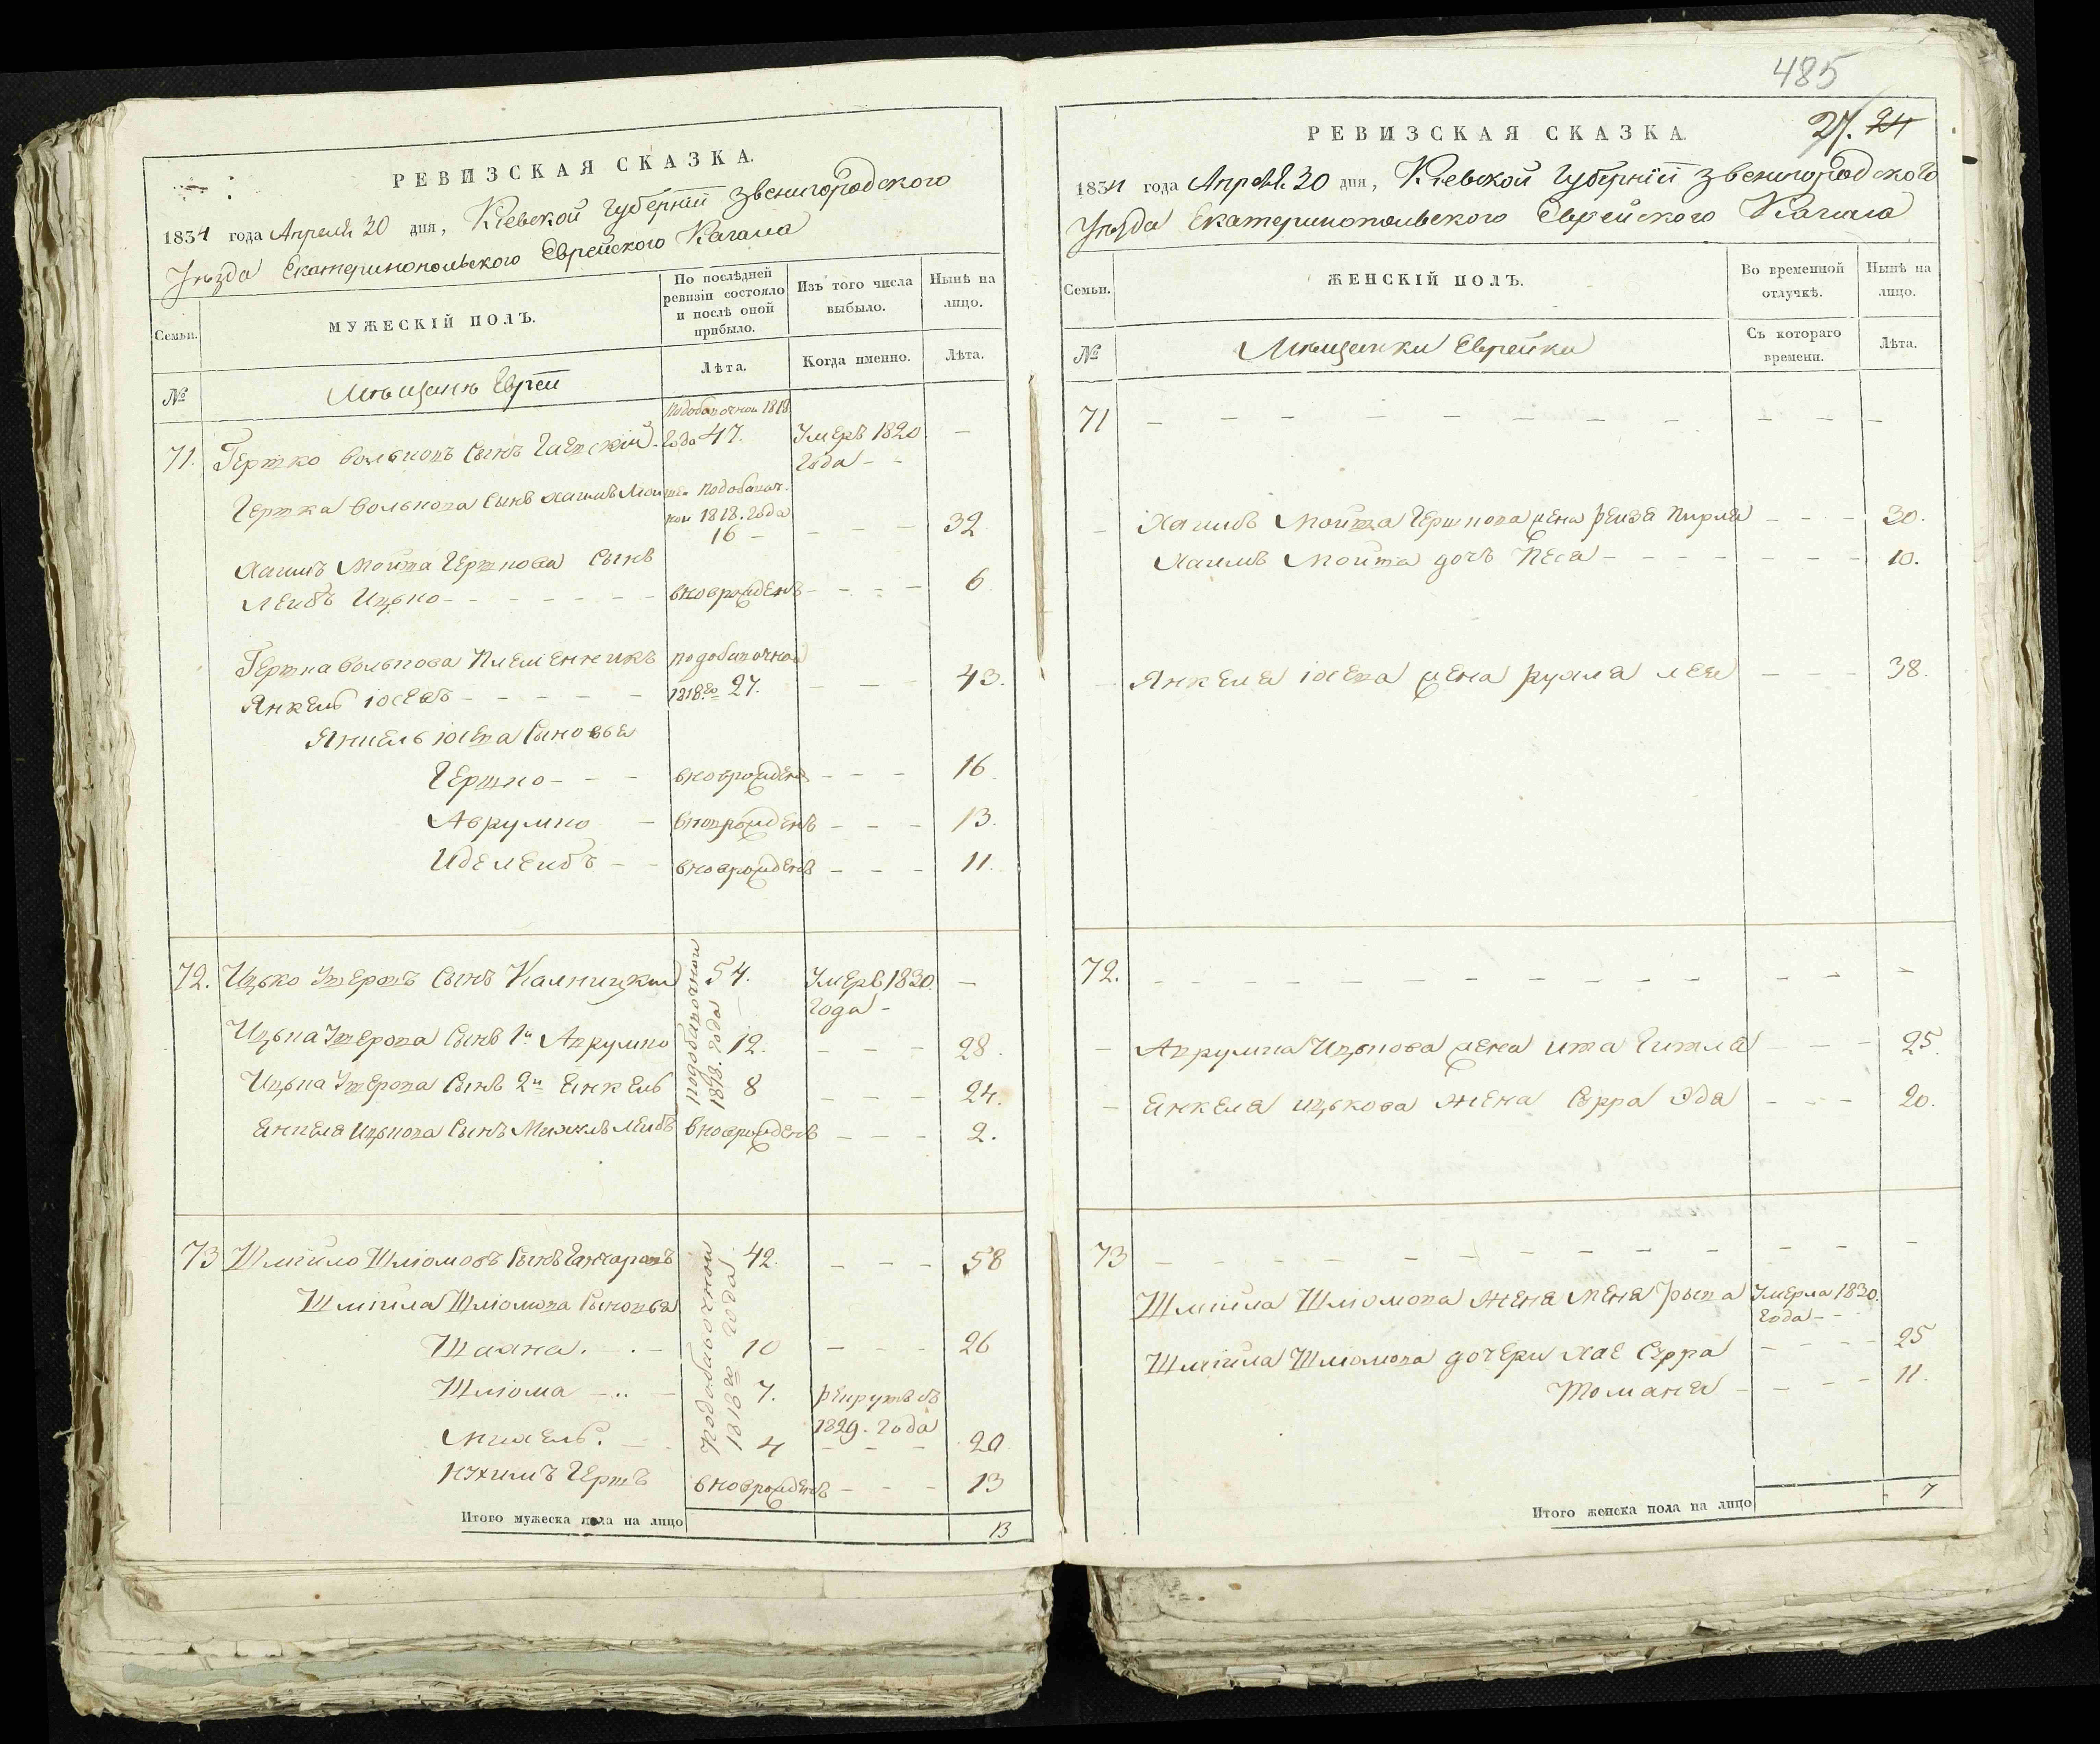 РЕВИЗСКАЯ СКАЗКА.
1834 года Апреля 30 дня, Кіевской Губерніи Звенигородского
Уъзда Екатеринопольского Еврейского Кагала
Семьи.
МУЖЕСКІЙ ПОЛЪ.
По послѣдней ревизіи состояло и послѣ оной прибыло.
Изъ того числа выбыло.
Нынѣ на лицо.
№
Мѣщанъ Евреи
Лѣта.
Когда именно.
Лѣта.
71. Гершко Вольковъ Сынъ
подобавочной 1818. года 47. Умеръ 1820. года - - —
Гершка Волькова Сынъ Хаимъ Мошко подобавоч.
ной 1818. года 16 - - - - 32.
Хаимъ Мошка Гершкова Сынъ
Лейбъ Ицько - - - - - - - вноврожденъ - - - - 6
Гершка Волькова Племенникъ
Янкель Іосефъ - - - - - подобавочной 1818. го 27. - - - 43.
Янкель Іосефа Сыновья
Гершко - - - вноврожденъ - - - 16.
Аврумко - вноврожденъ - - - 13.
Иделейбъ - - вноврожденъ - - - 11.
72. Ицько Сынъ Калницкий 54. Умеръ 1830. года - —
подобавочной 1818. года
Ицька Сынъ 1й Аврумко 12. - - - 28.
Ицька Сынъ 2й Енкель 8 - - - 24.
Енкеля Ицькова Сынъ Михль Лейбъ вноврожденъ - - - 2.
73 Шміило Шліомовъ Сынъ Ганчаровъ 42. - - - 58
подобавочной 1818 го года
Шміила Шліомова Сыновья
Шаяна. - . - 10 - - - 26
Шліома - .. - 7. рекрутъ въ 1829. года
Михель. - . 4 - - - 20
Нухимъ Гершъ вноврожденъ - - - 13
Итого мужеска пола на лицо 13
485
27. 24
РЕВИЗСКАЯ СКАЗКА.
1834 года Апреля 30 дня, Кіевской Губерніи Звенигородского
Уъзда Екатеринопольского Еврейского Кагала
Семьи.
ЖЕНСКІЙ ПОЛЪ.
Во временной отлучкѣ.
Нынѣ на лицо.
№
Мѣщанки Еврейки
Съ котораго времени.
Лѣта.
71 - - - - - - - - - - - -
- Хаимъ Мошка Гершкова жена Рейза Пирля - - - 30.
Хаимъ Мошка дочъ Песа - - - - - - - 10.
- Янкеля Іосефа жена Рухля Лея - - - 38.
72. - - - - - - - - - - - -
- Аврумка Ицькова жена Ита Гитля - - - 25.
- Енкеля Ицькова жена Сурра Эда - - - 20.
73 - - - - - - - - - - - -
Шміила Шліомова жена Умерла 1830. года - -
Шміила Шліомова дочери Хае Сурра - - - - 25
- - - - 11.
Итого женска пола на лицо 7